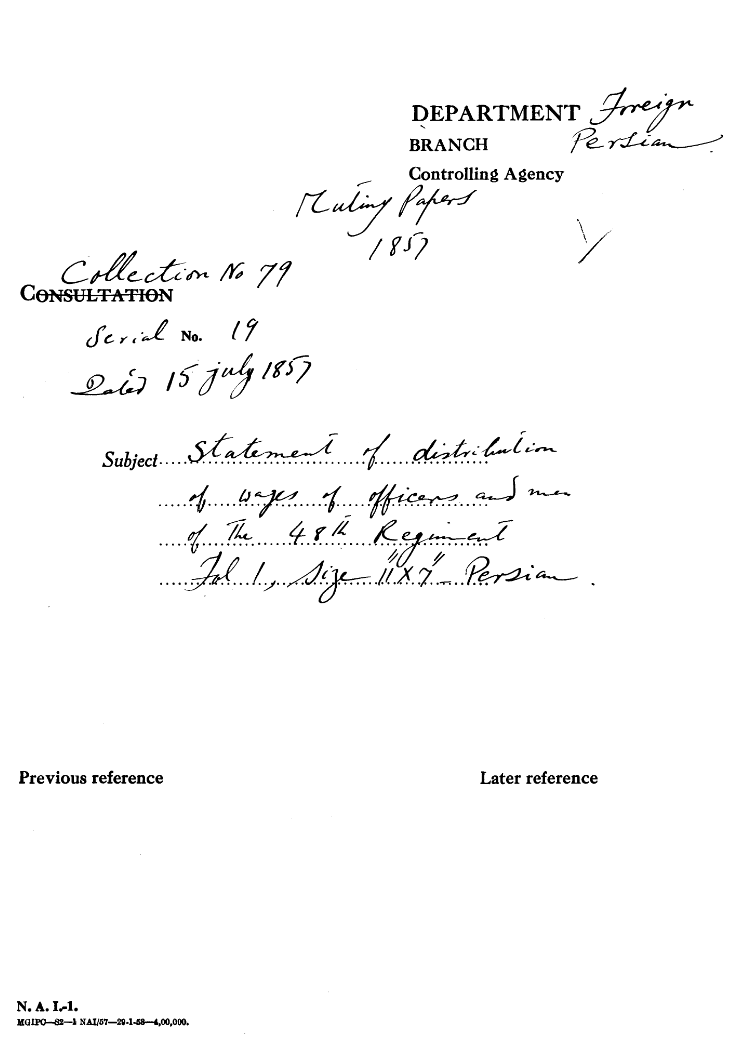 DEPARTMENT Foreign
BRANCH Persian
Controlling Agency
Mutiny Papers
1857
Collection No 79
CONSULTATION
Serial No. 19
Dated 15 july 1857
Subject Statement of distribution
of wages of officers and men
of The 48th Regiment
Fol 1, Size 11"X7" Persian.
Previous reference Later reference
N. A. I.-1.
MGIPC—S2—1 NAI/57—29-1-58—4,00,000.